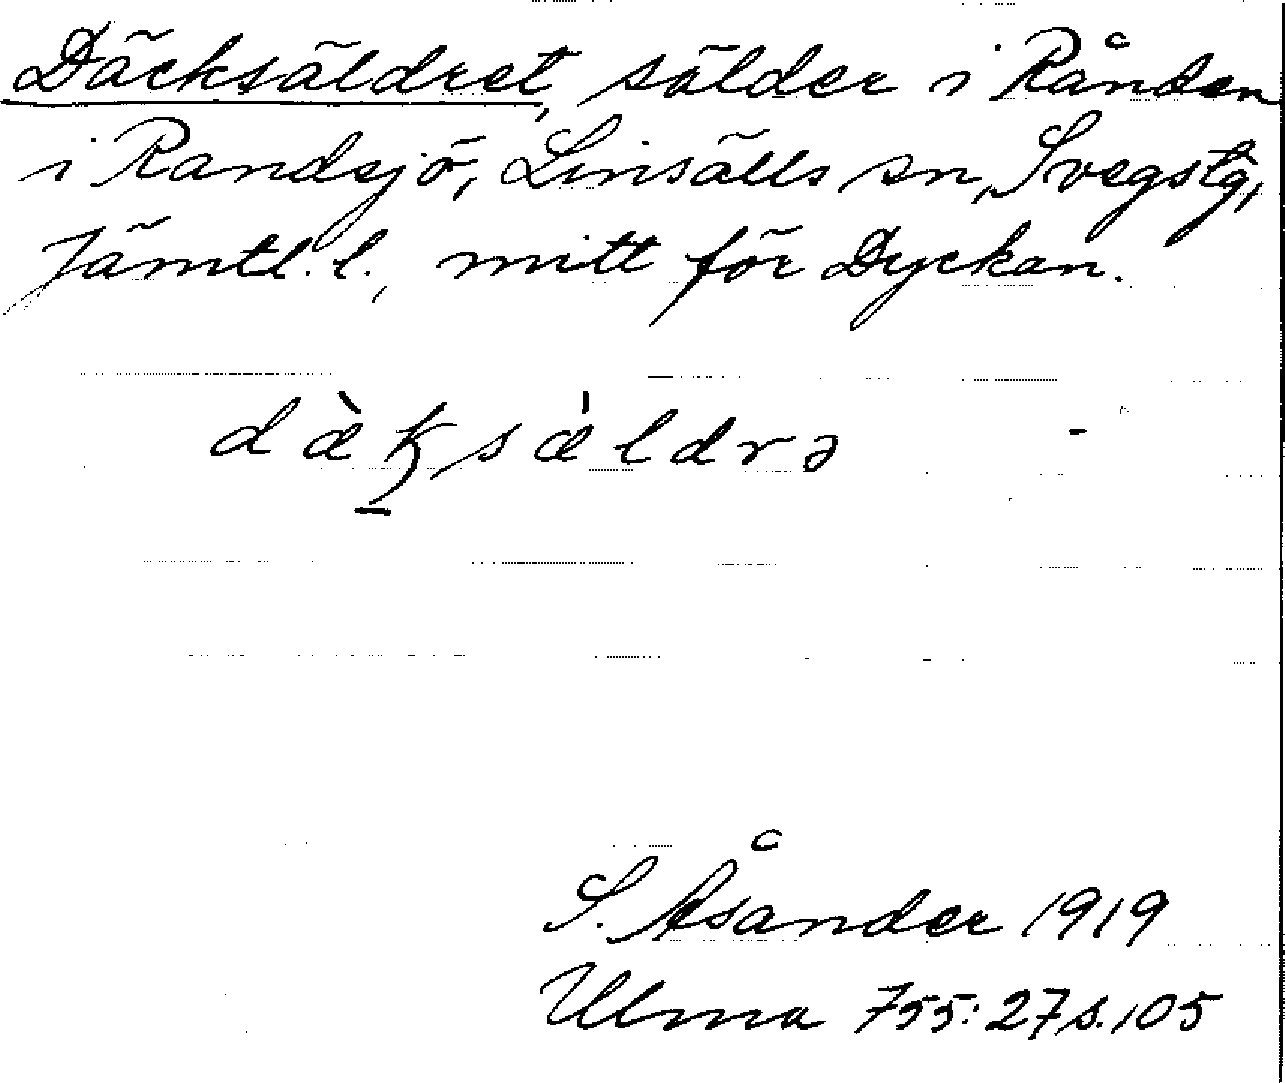 Däcksäldret, sälder i Rånden
i Randsjö, Linsälls sn, Svegs tg,
Jämtl. l., mitt för Dyckan.
dæ̀ksæ̍ldrə -
S. Åsander 1919
Ulma 755:27 s. 105